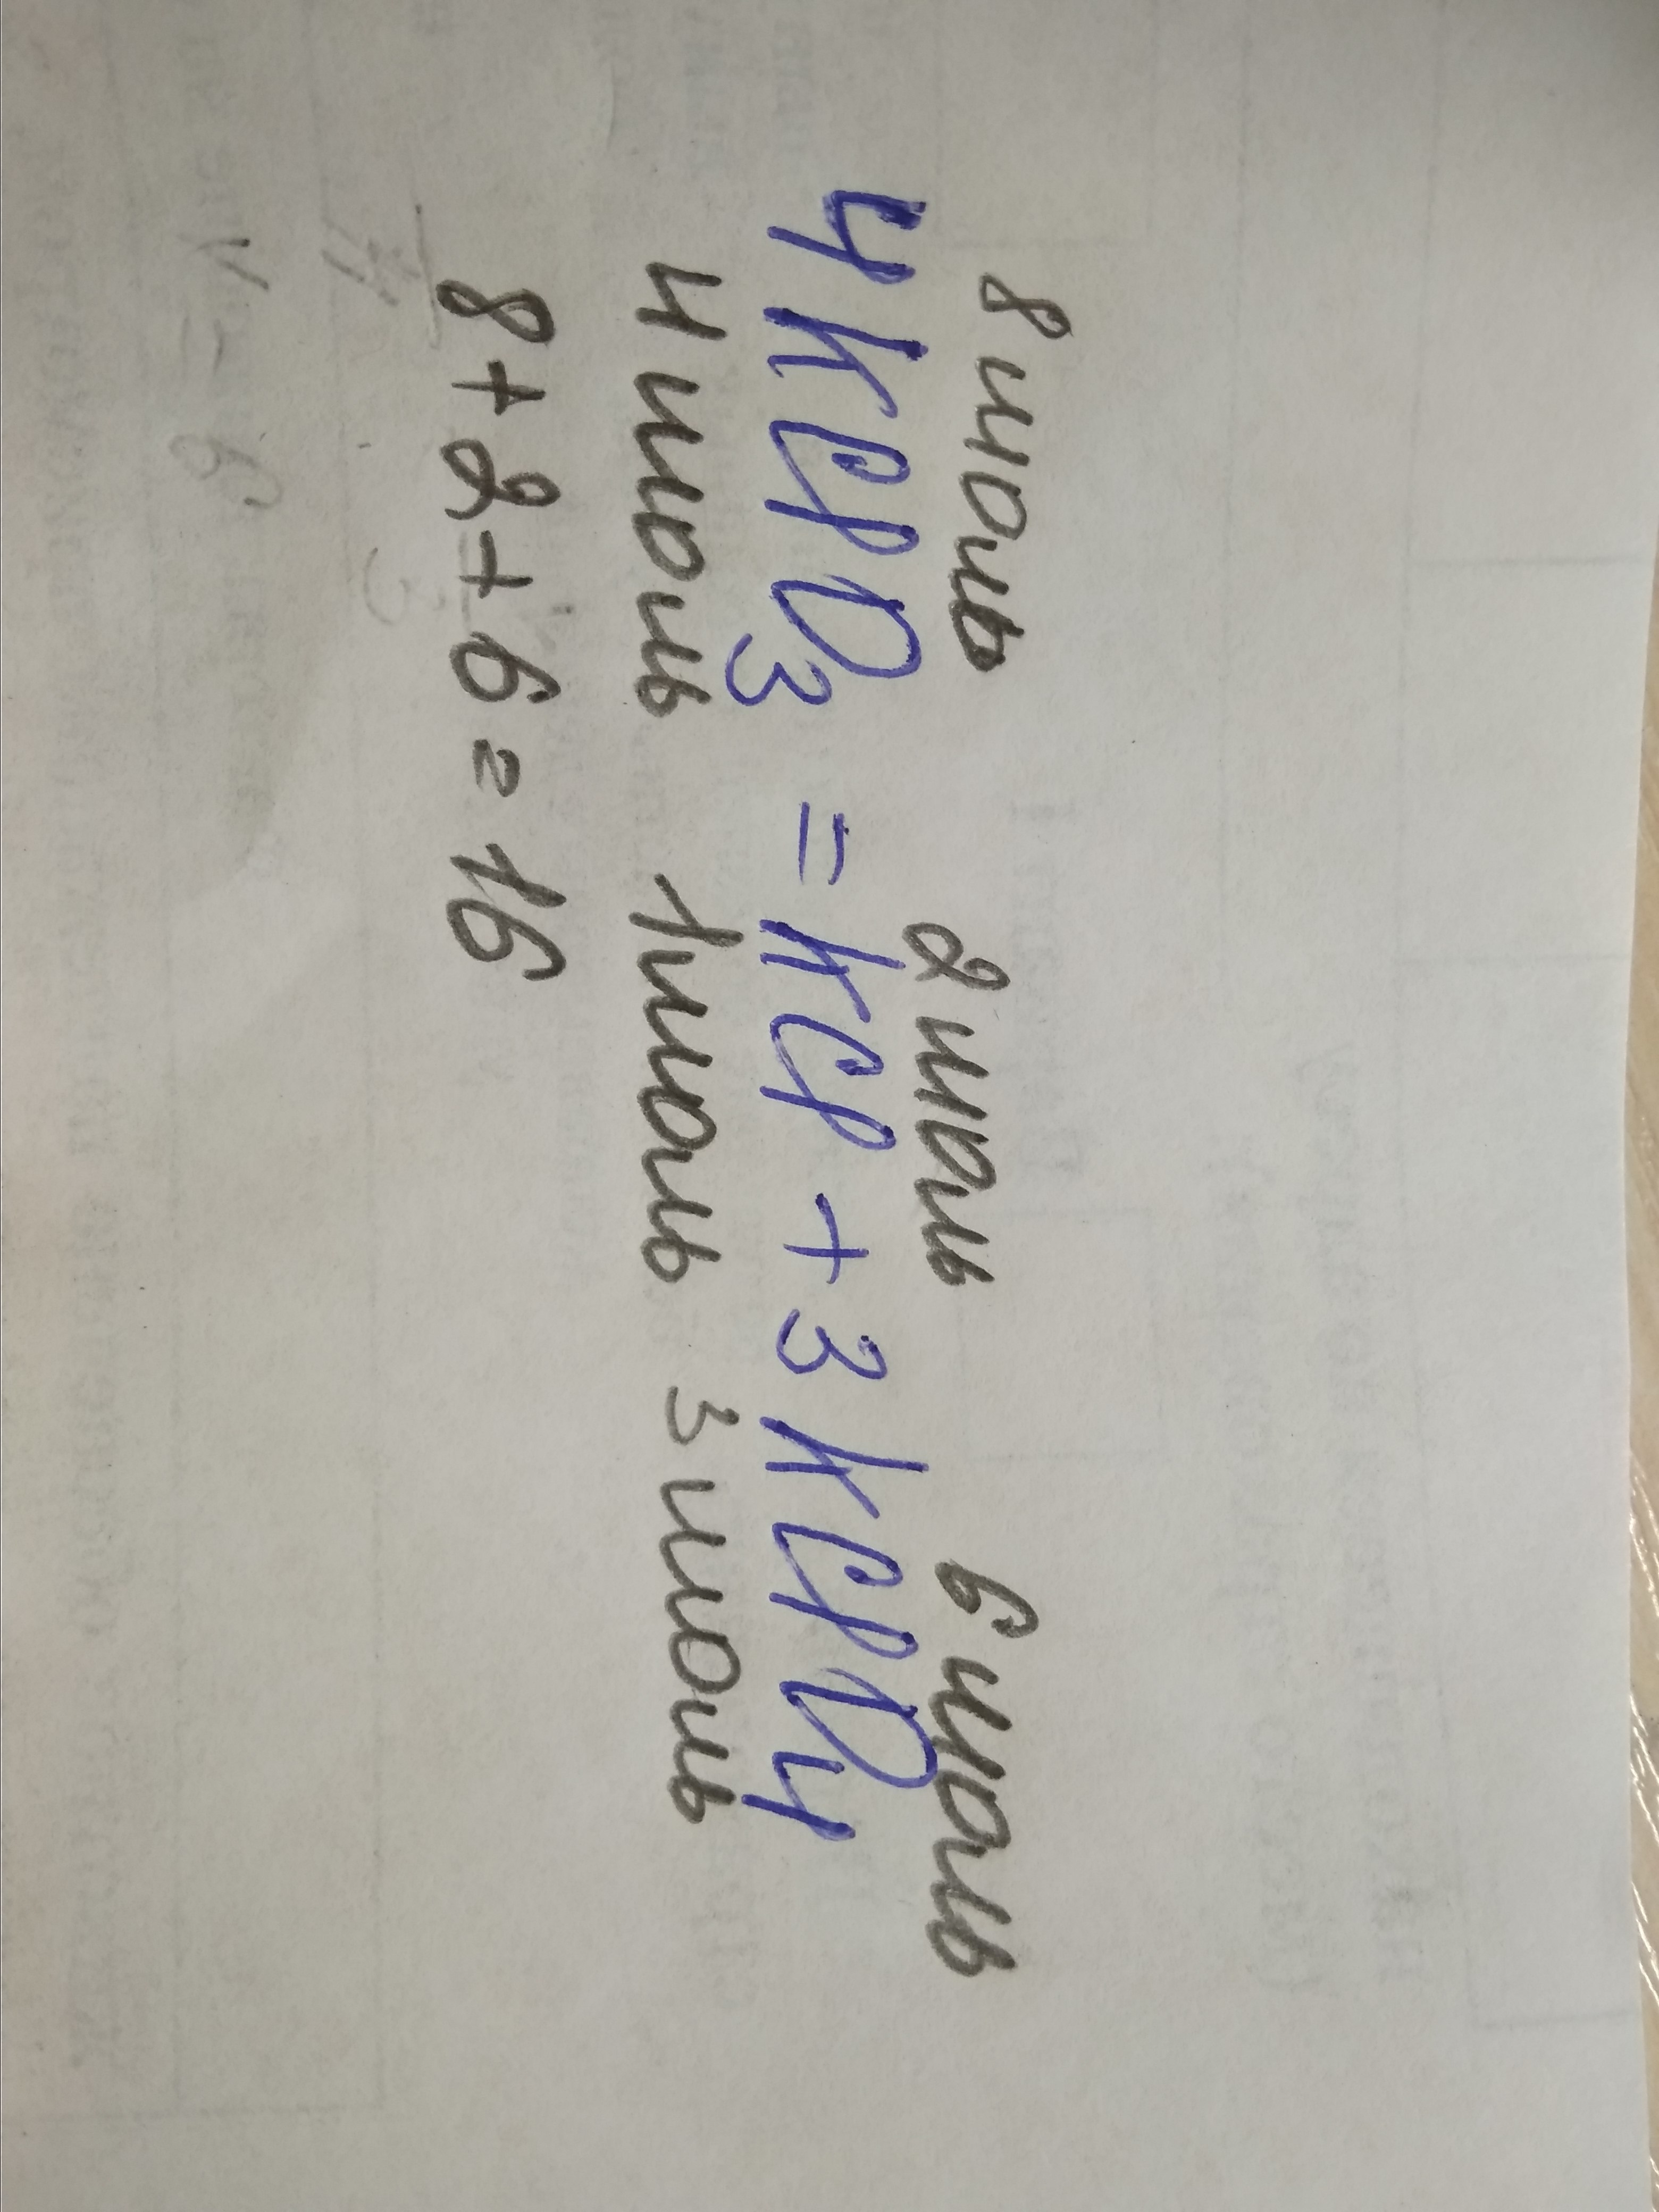 8 моль 2 моль 6 моль
4KClO₃ = KCl + 3KClO₄
4 моль 1 моль 3 моль
8 + 2 + 6 = 16